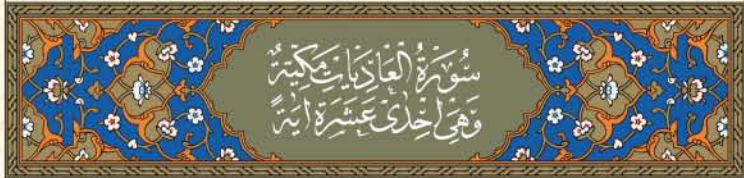 سُورَةُ الْعَادِيَاتِ مَكِّيَّةٌ
وَهِيَ اِحْدٰى عَشَرَةَ اٰيَةً